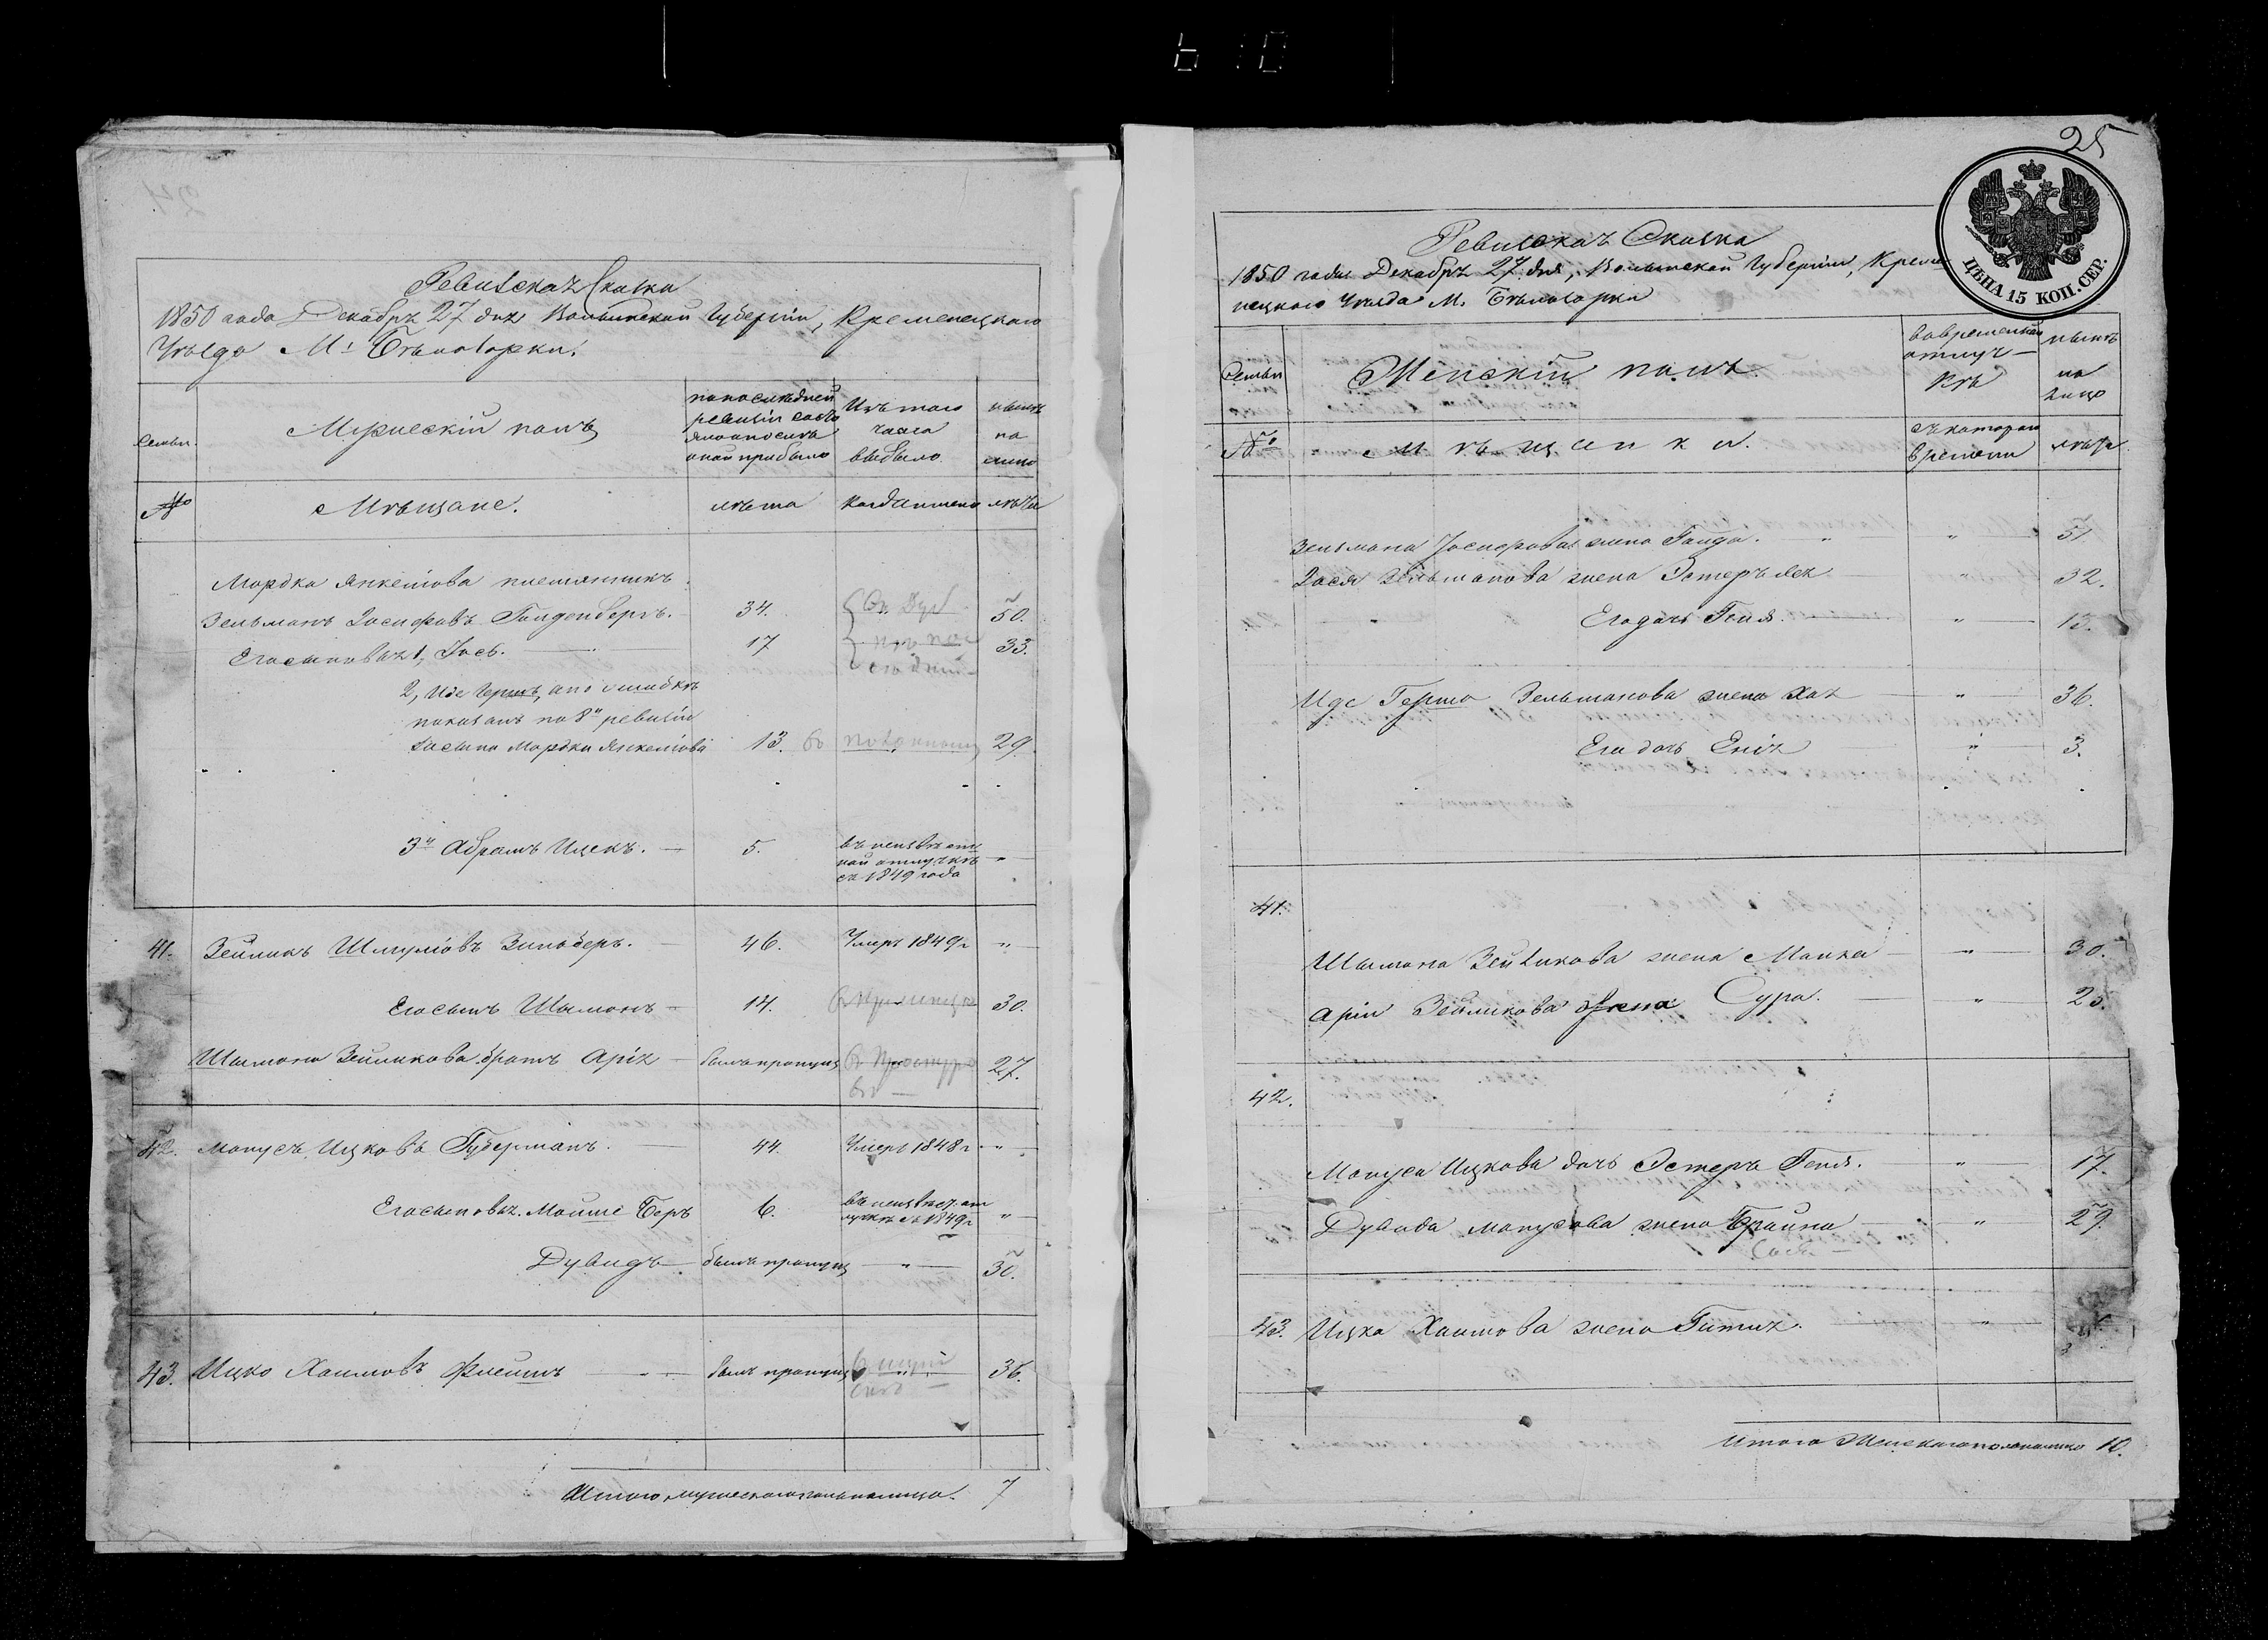 Ревизская Сказка
1850 года Декабря 27 дня Волынской Губерніи, Кременецкаго
Уѣзда М: Бѣлозорки.
Семьи.
Мужескій полъ
по последней
ревизіи состо
яло и после
оной прибыло
Изъ того
числа
выбыло
нынѣ
на
лицо
№
Мѣщане.
лѣта
когда именно
лѣта
Мордка Янкелiова племянникъ
Зельманъ Іосифовъ Голденбергъ. 34. 50.
Его сыновья 1, Іось. 17 33.
2, Иде Гершъ, а по ошибкѣ
показанъ по 8й ревизіи
за сына Мордки Янкелiова 13. 29.
3й Абрамъ Ицекъ. 5. въ неизвѣст
ной отлучкѣ "
съ 1849 года
41. Зейликъ Шмулiовъ Зильберъ. 46. Умеръ 1849 г "
Его сынъ Шымонъ 14. 30.
Шымона Зейликова братъ Арія былъ пропущ 27.
42. Манусъ Ицковъ Губерманъ. 44. Умеръ 1848 г "
Его сыновья. Мойше Беръ 6. въ неизвѣст. от
лучкѣ съ 1849 г "
Дувидъ былъ пропущ " 30.
43. Ицко Хаимовъ Флейшъ былъ пропущ 36.
Итого мужеска пола на лицо. 7
25
ЦѢНА 15 КОП. СЕР.
Ревизская Сказка
1850 года Декабря 27 дня, Волынской Губерніи, Креме
нецкаго Уѣзда М. Бѣлозорки
Семьи
Женскій полъ.
во временной
отлуч
кѣ
нынѣ
на
лицо
№
Мѣщанки.
съ котораго
времени
лѣта
Зельмана Іосифова жена Голда. " 51
Іося Зельманова жена Эстеръ Лея " 32.
Его дочь Геня. " 13.
Иде Герша Зельманова жена Хая " 36.
Его дочь Енія " 3.
41.
Шымона Зейликова жена Манка " 30.
Арiи Зейликова жена Сура. " 25.
42.
Мануса Ицкова дочь Эстеръ Геня. " 17.
Дувида Манусова жена Брайна " 29.
43. Ицка Хаимова жена Гитля. "
Итого Женскаго пола на лицо 10.